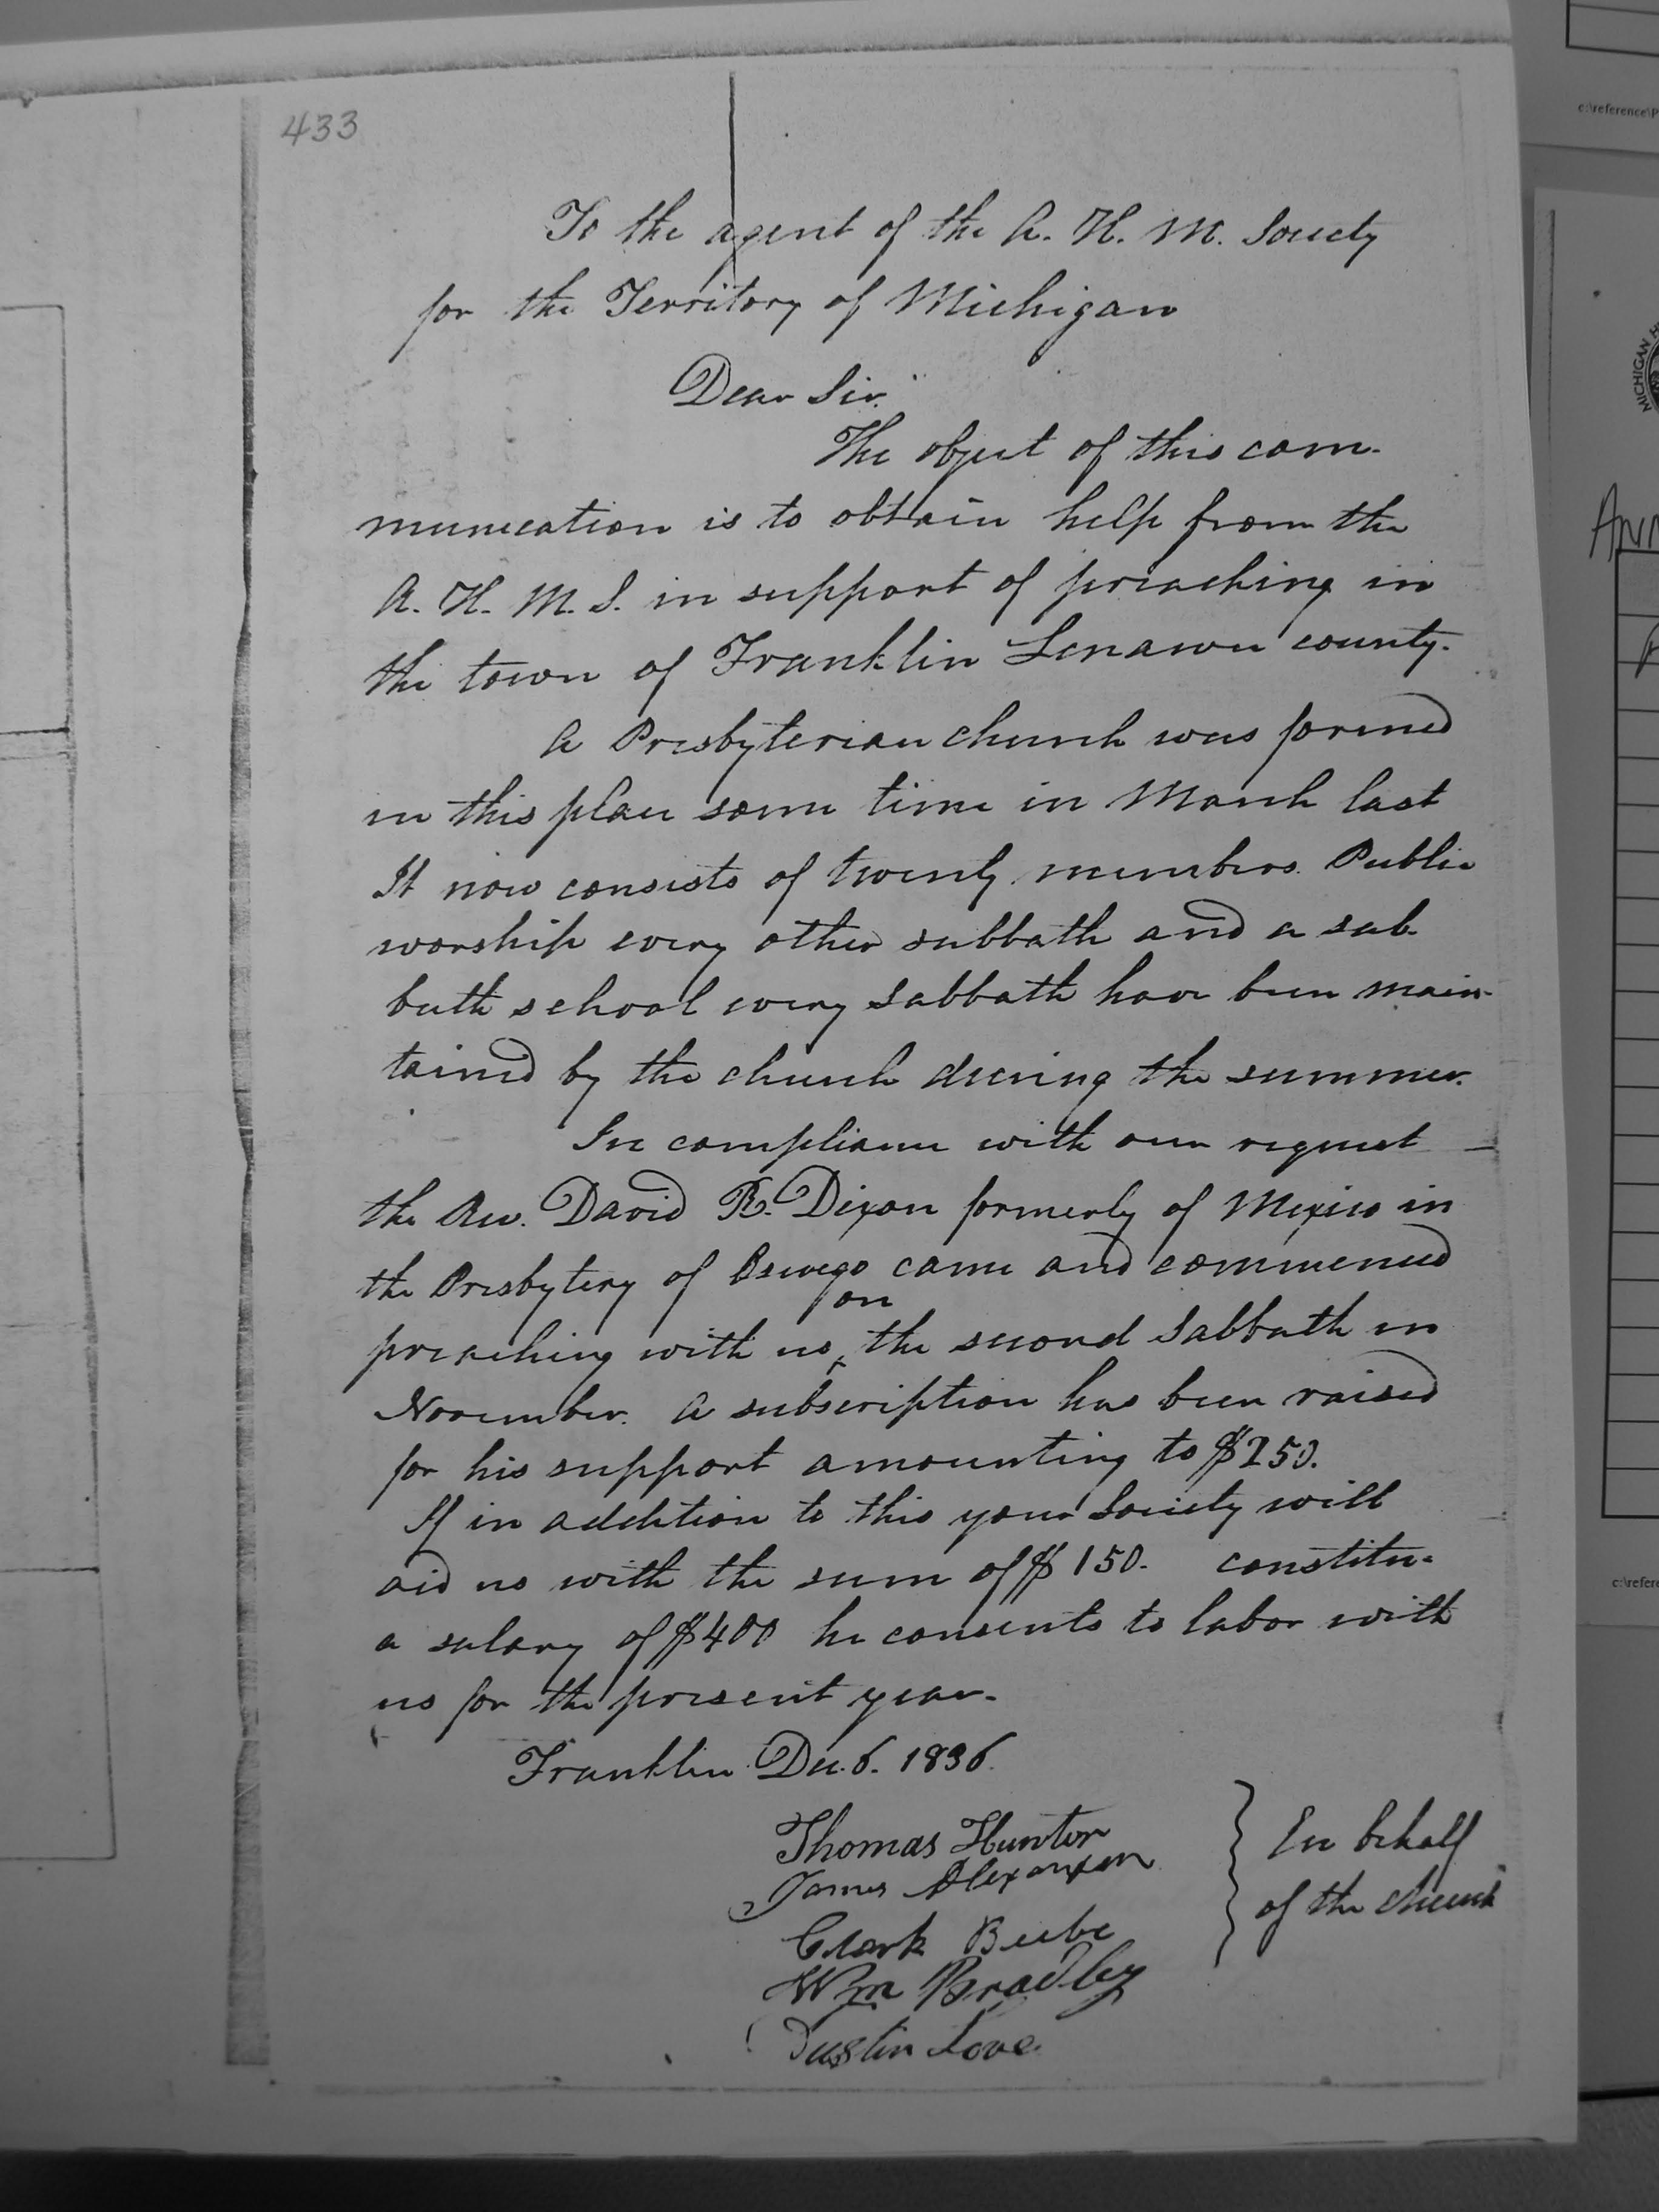 433
To the agent of the A. H. M. Society
for the Territory of Michigan
Dear Sir.
The object of this com-
munication is to obtain help from the
A. H. M. S. in support of preaching in
the town of Franklin Lenawee county.
A Presbyterian church was formed
in this place some time in March last
It now consists of twenty members. Public
worship every other sabbath and a sab-
bath school every Sabbath have been main-
tained by the church during the summer.
In compliance with our request
the Rev. David R. Dixon formerly of Mexico in
the Presbytery of Oswego came and commenced
on
preaching with us ‸ the second Sabbath in
November. A subscription has been raised
for his support amounting to $250.
If in addition to this your Society will
aid us with the sum of $150. constitu-
a salary of $400 he consents to labor with
us for the present year.
Franklin Dec. 6. 1836.
Thomas Hunter
James Alexander
Clark Beebe
Wm Bradley
Justin Love
} In behalf
of the church
c:\reference\P
MICHIGAN H
c:\refere